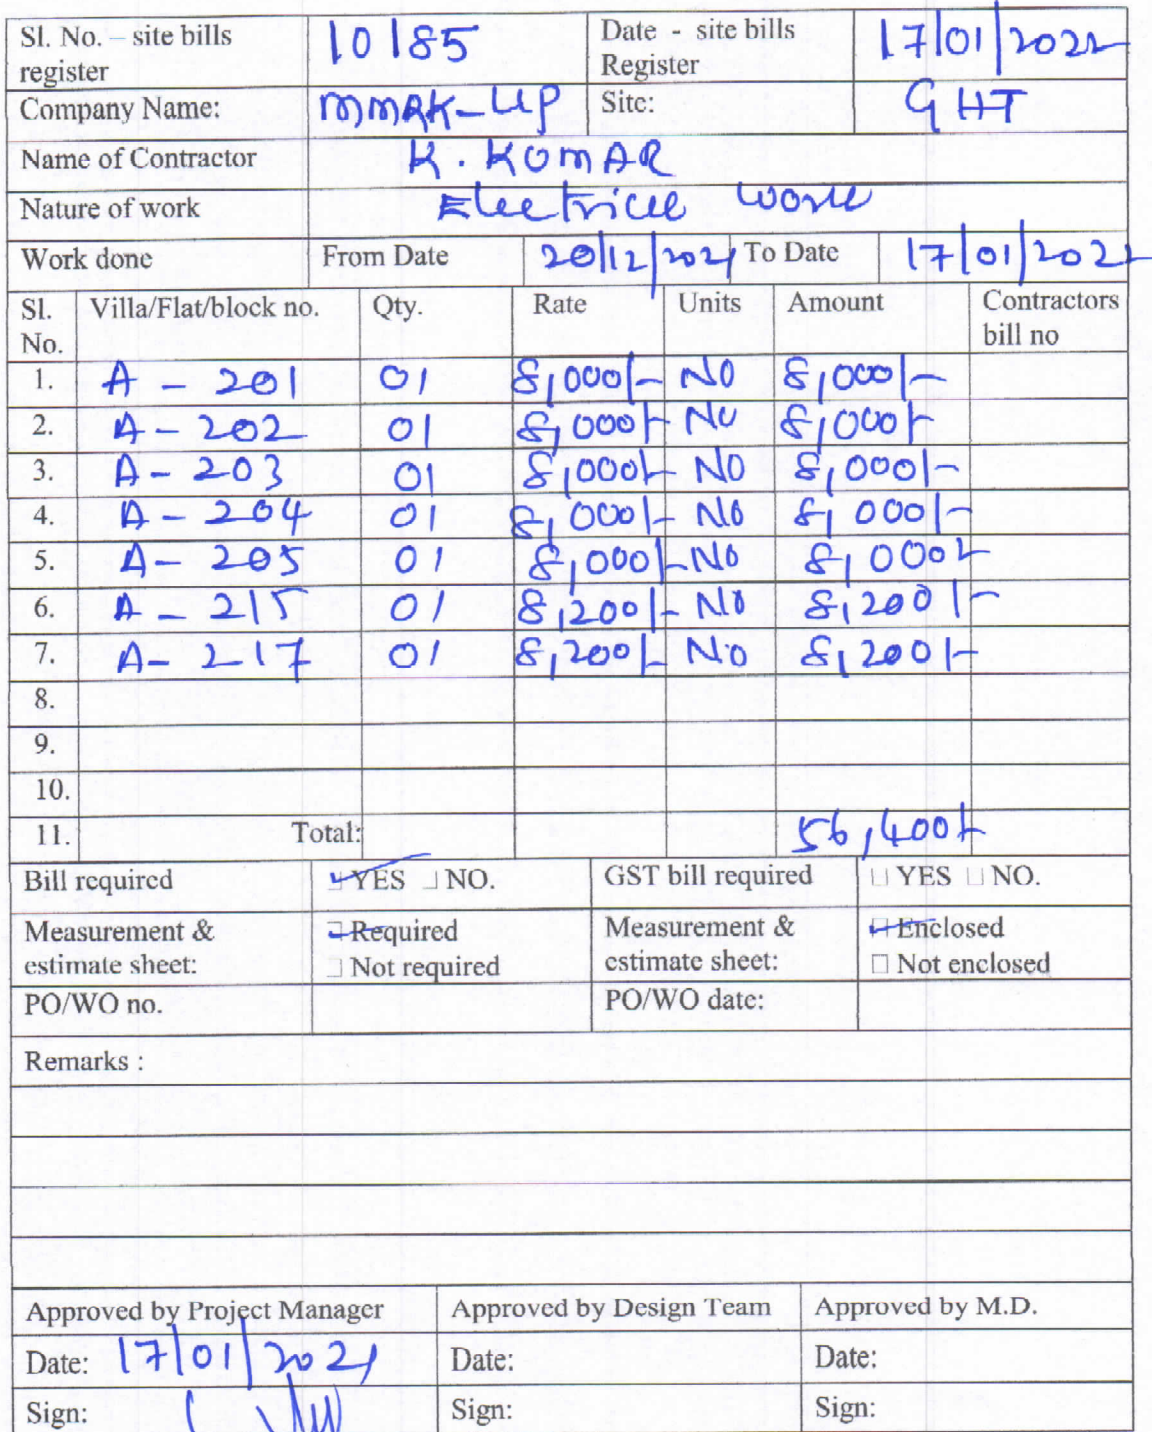 Sl. No. – site bills register 10/85 Date - site bills Register 17/01/2022
Company Name: MMRK-UP Site: GHT
Name of Contractor K. KUMAR
Nature of work Electrical work
Work done From Date 20/12/2021 To Date 17/01/2022
Sl. No. Villa/Flat/block no. Qty. Rate Units Amount Contractors bill no
1. A - 201 01 8,000/- NO 8,000/-
2. A - 202 01 8,000/- NO 8,000/-
3. A - 203 01 8,000/- NO 8,000/-
4. A - 204 01 8,000/- NO 8,000/-
5. A - 205 01 8,000/- NO 8,000/-
6. A - 215 01 8,200/- NO 8,200/-
7. A - 217 01 8,200/- NO 8,200/-
8.
9.
10.
11. Total: 56,400/-
Bill required YES NO. GST bill required YES NO.
Measurement & estimate sheet: Required Not required Measurement & estimate sheet: Enclosed Not enclosed
PO/WO no. PO/WO date:
Remarks :
Approved by Project Manager Approved by Design Team Approved by M.D.
Date: 17/01/2021 Date: Date:
Sign: Sign: Sign: